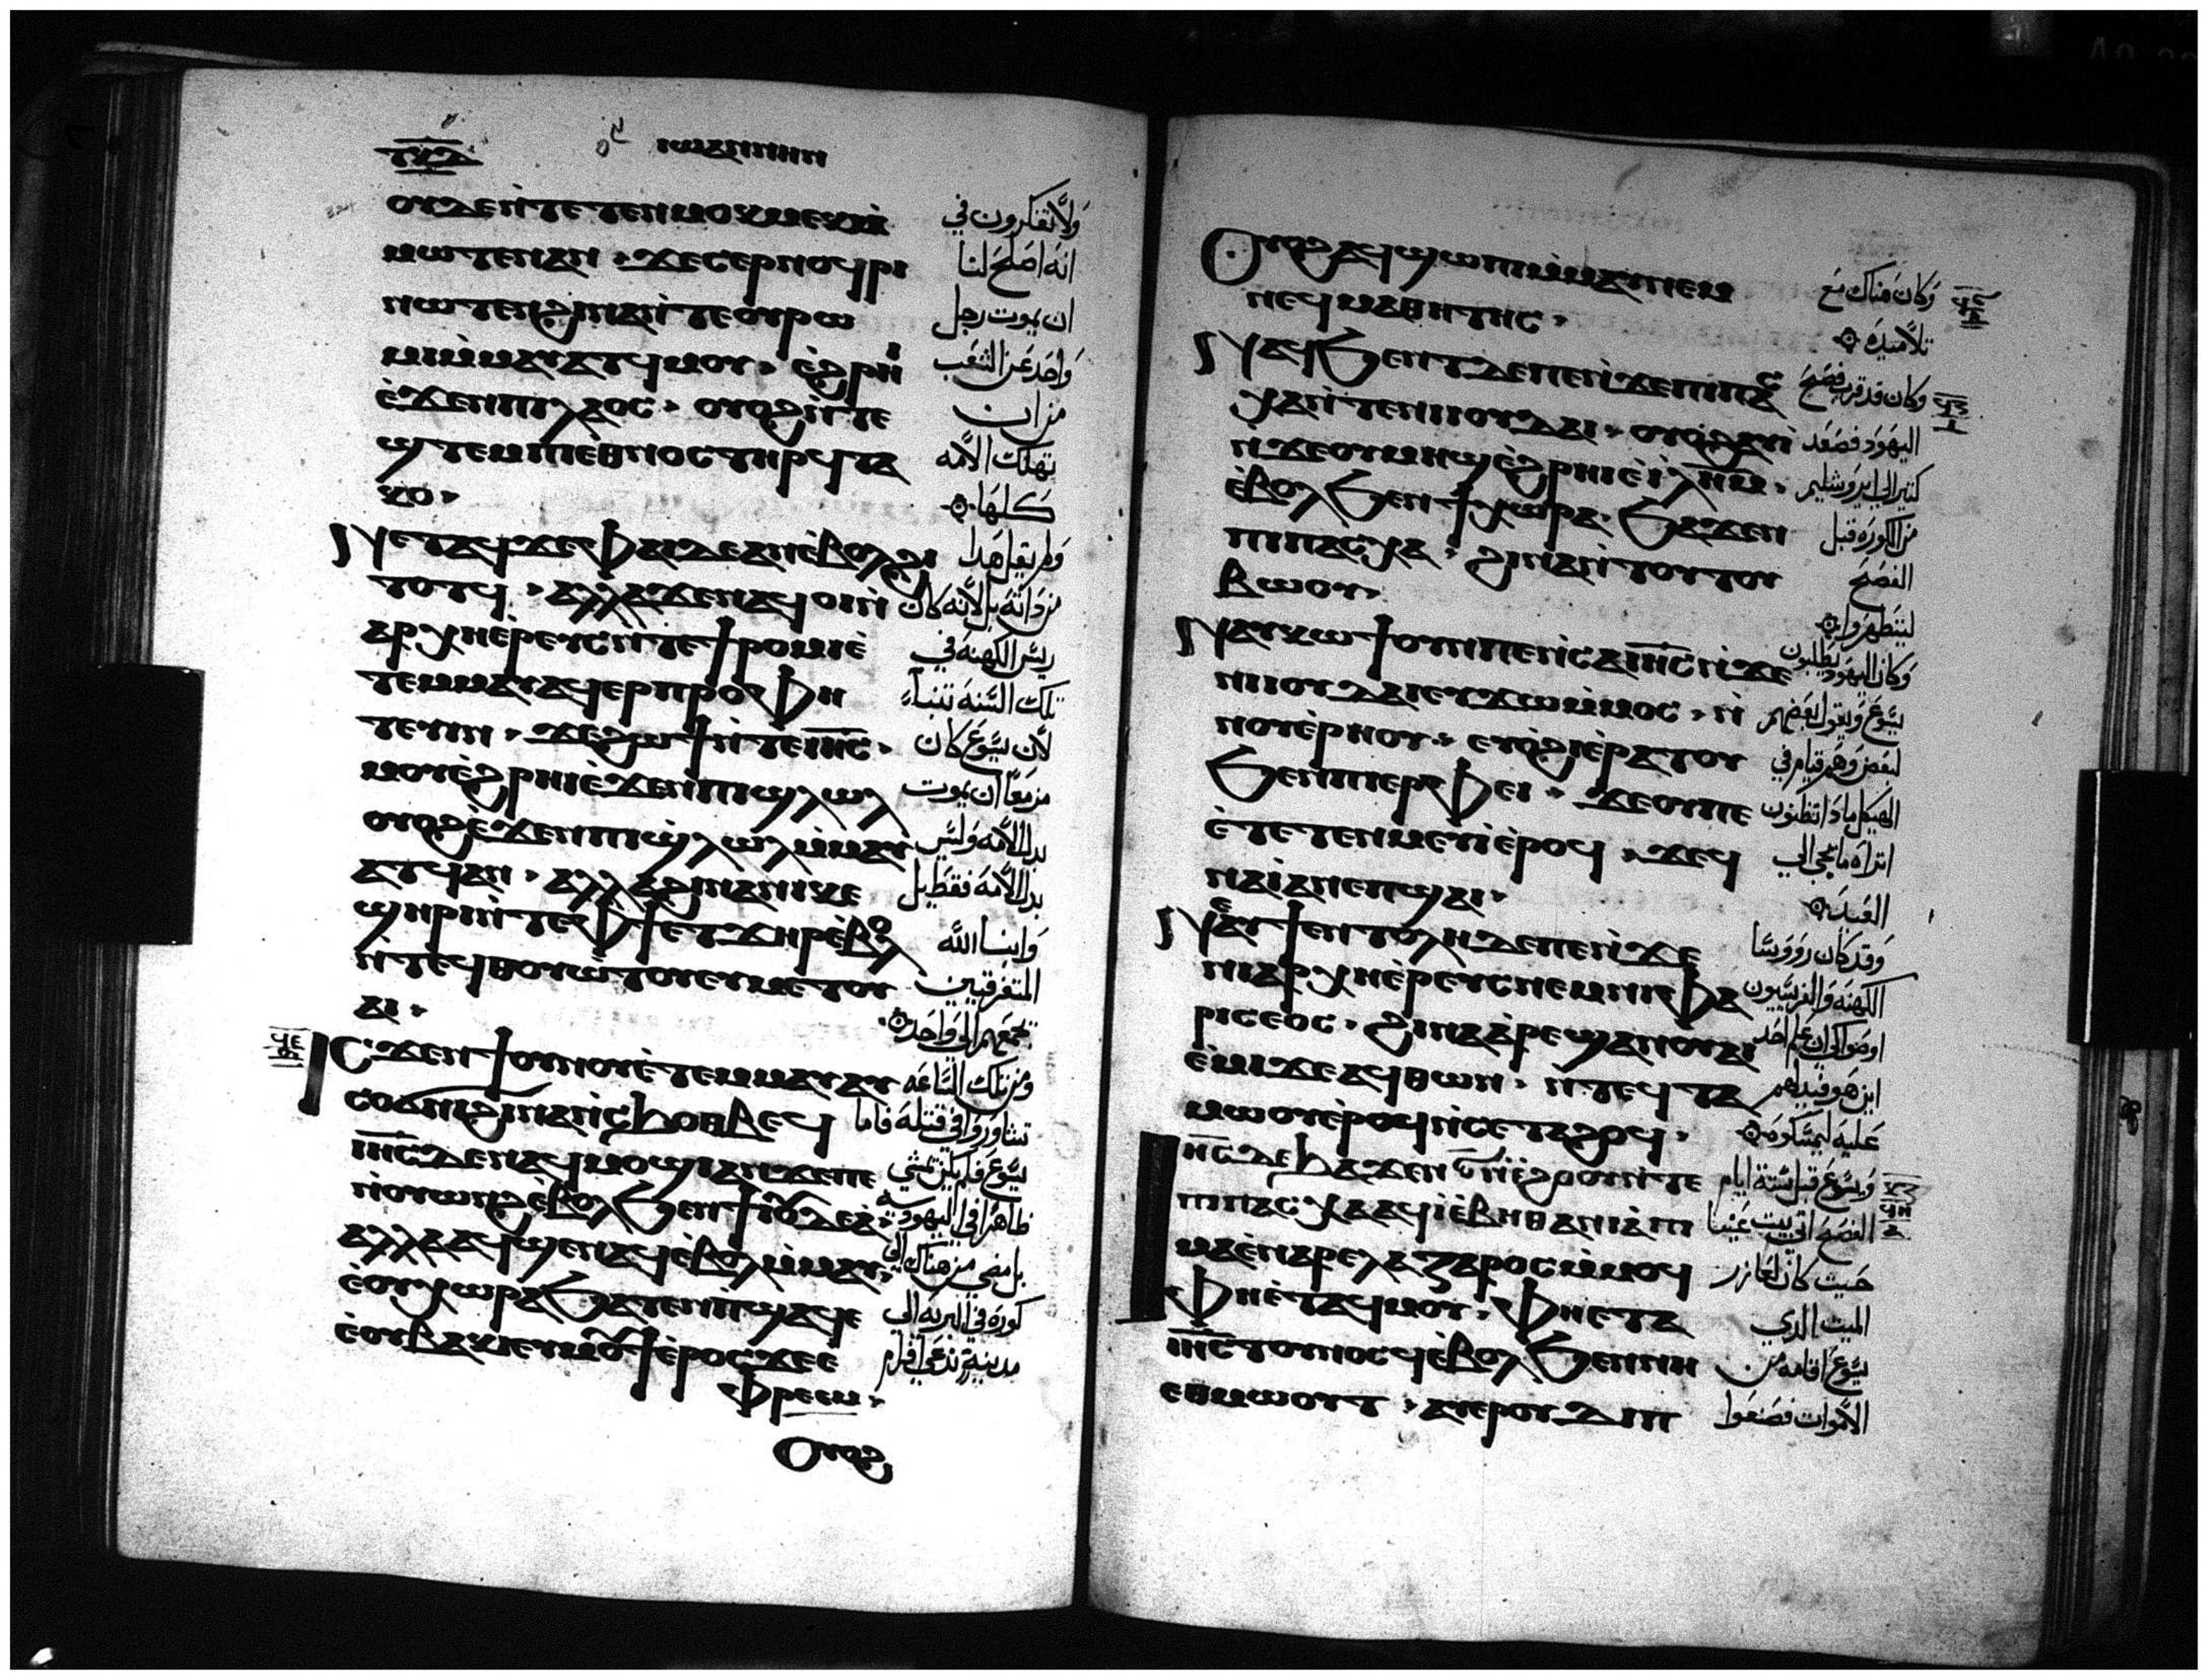 ⲓⲱⲁⲛⲛⲏⲛ
ⲟⲩⲇⲉ ⲛ̀ⲧⲉⲧⲉⲛⲙⲟⲕⲙⲉⲕ ⲙ̀
ⲙⲱⲧⲉⲛ ⲁⲛ · ϫⲉ ⲥⲉⲣⲛⲟϥⲣⲓ
ⲛⲱⲧⲉⲛ ϩⲓⲛⲁ ⲛ̀ⲧⲉ ⲟⲩⲣⲱ
ⲙⲓ ⲙ̀ⲙⲁⲩⲁⲧϥ ⲙⲟⲩ · ⲉ̀ϩⲣⲏⲓ
ⲉ̀ϫⲉⲛ ⲡⲓⲗⲁⲟⲥ · ⲟⲩⲟϩ ⲛ̀ⲧⲉ
ϣⲧⲉⲙ ⲡⲓⲉ̀ⲑⲛⲟⲥ ⲧⲏⲣϥ ⲧⲁ
ⲕⲟ ·
ⲛⲉⲧⲁϥϫⲉ ⲫⲁⲓ ⲇⲉ ⲁⲛ ⲉ̀ⲃⲟⲗ ϩⲓ
ⲧⲟⲧϥ · ⲁⲗⲗⲁ ϫⲉ ⲛⲁϥⲟⲓ ⲛ̀
ⲁⲣⲭⲏⲉ̀ⲣⲉⲩⲥ ⲛ̀ⲧⲉ ϯⲣⲟⲙⲡⲓ ⲉ̀
ⲧⲉⲙⲙⲁⲩ ⲁϥⲉⲣⲡⲣⲟⲫⲏ
ⲧⲉⲩⲓⲛ · ϫⲉ ϩⲱϯ ⲛ̀ⲧⲉ ⲓⲏⲥ ·
ⲙⲟⲩ ⲉ̀ϩⲣⲏⲓ ⲉ̀ϫⲉⲛ ⲡⲓϣⲗⲱⲗ
ⲟⲩⲟϩ ⲉ̀ϫⲉⲛ ⲡⲓϣⲗⲱⲗ ⲙ̀ⲙⲁⲩ
ⲁⲧϥ ⲁⲛ · ⲁⲗⲗⲁ ϩⲓⲛⲁ ⲛⲓⲕⲉ
ϣⲏⲣⲓ ⲛ̀ⲧⲉ ⲫϯ ⲉⲧϫⲏⲣ ⲉ̀ⲃⲟⲗ
ⲛ̀ⲧⲉϥⲑⲟⲩⲱⲧⲟⲩ ⲉⲩⲙⲉⲧⲟⲩ
ⲁⲓ ·
ⲓⲥϫⲉⲛ ϯⲟⲩⲛⲟⲩ ⲉ̀ⲧⲉⲙⲙⲁⲩ ⲁⲩ
ⲥⲟϭⲛⲓ ϩⲓⲛⲁ ⲛ̀ⲥⲉϧⲟⲑⲃⲉϥ
ⲓⲏⲥ ⲇⲉ ⲛⲁϥⲙⲟϣⲓ ⲁⲛ ϫⲉ ⲡⲉ
ⲛ̀ⲟⲩⲱⲛϩ ⲉ̀ⲃⲟⲗ ϧⲉⲛ ϯⲓⲟⲩⲇⲉⲁ̀ ·
ⲁⲗⲗⲁ ⲁϥϣⲉⲛⲁϥ ⲉ̀ⲃⲟⲗ ⲙ̀ⲙⲁⲩ ·
ⲉ̀ⲟⲩⲭⲱⲣⲁ ϧⲁⲧⲉⲛ ⲡ̀ϣⲁϥⲉ
ⲉ̀ⲟⲩⲃⲁⲕⲓ ⲉⲩⲙⲟⲩϯ ⲉ̀ⲣⲟⲥ ϫⲉ ⲉ
ⲫⲣⲉⲙ ·
ⲟⲩⲟϩ
ولا تفكرون في
انه اصلح لنا
ان يموت رجل
واحد عن الشعب
من ان
تهلك الامه
كلها
ولم يقل هدا
من داته بل لانه كان
ريس الكهنه في
تلك السنه تنباء
لان يسوع كان
مزمعا ان يموت
بدل الامه وليس
بدل الامه فقط بل
وابنا الله
المتفرقيين
يجمعهم الى واحد
ومن تلك الساعه
تشاوروا في قتله فاما
يسوع فلم يكن يمشي
ظاهرا في اليهوديه
بل مضي من هناك الي
كوره في البريه الي
مدينة تدعي افرام
ⲟⲩⲟϩ ⲁϥϣⲱⲡⲓ ⲙ̀ⲙⲁⲩ ⲛⲉⲙ
ⲛⲉϥⲙⲁⲑⲏⲧⲏⲥ ·
ⲛⲁϥϧⲉⲛⲧ ⲇⲉ ⲡⲉ ⲛ̀ϫⲉ ⲡⲓⲡⲁⲥ
ⲭⲁ ⲛ̀ⲧⲉ ⲛⲓⲟⲩⲇⲁⲓ · ⲟⲩⲟϩ ⲁⲩⲓ̀
ⲛ̀ϫⲉ ⲟⲩⲙⲏϣ ⲉ̀ϩⲣⲏⲓ ⲉ̀ⲓ̀ⲗⲏⲙ ·
ⲉ̀ⲃⲟⲗ ϧⲉⲛ ϯⲭⲱⲣⲁ · ϧⲁϫⲉⲛ
ⲡⲓⲡⲁⲥⲭⲁ · ϩⲓⲛⲁ ⲛ̀ⲧⲟⲩⲧⲟⲩ
ⲃⲱⲟⲩ ·
ⲛⲁⲩⲕⲱϯ ⲟⲩⲛ ⲡⲉ ⲛ̀ⲥⲁ ⲓⲏⲥ ⲛ̀ϫⲉ
ⲛⲓⲟⲩⲇⲁⲓ ⲉⲩϫⲱ ⲙ̀ⲙⲟⲥ · ⲛ̀
ⲛⲟⲩⲉ̀ⲣⲏⲟⲩ · ⲉⲩⲟ̀ϩⲓ ⲉ̀ⲣⲁⲧⲟⲩ
ϧⲉⲛ ⲡⲓⲉⲣⲫⲉⲓ · ϫⲉ ⲟⲩ ⲡⲉ
ⲉ̀ⲧⲉⲧⲉⲛⲙⲉⲩⲓ̀ ⲉ̀ⲣⲟϥ · ϫⲉ ϥ
ⲛⲁⲓ̀ ⲁⲛ ⲉⲡϣⲁⲓ ·
ⲛⲉⲁⲩϯⲉⲛⲧⲟⲗⲏ ⲇⲉ ⲡⲉ ⲛ̀ϫⲉ
ⲛⲓⲁⲣⲭⲏⲉ̀ⲣⲉⲩⲥ ⲛⲉⲙ ⲛⲓⲫⲁ
ⲣⲓⲥⲉⲟⲥ · ϩⲓⲛⲁ ⲁ̀ⲣⲉϣⲁⲛ ⲟⲩⲁⲓ
ⲉ̀ⲙⲓ ϫⲉ ⲁϥⲑⲱⲛ · ⲛ̀ⲧⲉϥⲧⲁ
ⲙⲱⲟⲩ ⲉ̀ⲣⲟϥ ⲛ̀ⲥⲉⲧⲁϩⲟϥ ·
ⲓⲏⲥ ⲇⲉ ϧⲁϫⲉⲛ ⲋ̅ ⲛ̀ⲉ̀ϩⲟⲟⲩ ⲛ̀ⲧⲉ
ⲡⲓⲡⲁⲥⲭⲁ ⲁϥⲓ̀ ⲉ̀ⲃⲏⲑⲁⲛⲓⲁ̀ ⲡⲓ
ⲙⲁ ⲉ̀ⲛⲁⲣⲉ ⲗⲁⲍⲁⲣⲟⲥ ⲙ̀ⲙⲟϥ
ⲫⲏ ⲉ̀ⲧⲁϥⲙⲟⲩ · ⲫⲏ ⲉⲧⲁ
ⲓⲏⲥ ⲧⲟⲩⲛⲟⲥϥ ⲉ̀ⲃⲟⲗ ϧⲉⲛ ⲛⲏ
ⲉⲑⲙⲱⲟⲩⲧ · ⲁⲩⲉⲣⲟⲩⲇⲓⲡ
وكان هناك مع
تلاميده
وكان قد قرب فصح
اليهود فصعد
كثير الي ايروشليم
من الكوره قبل
الفصح
ليتطهروا
وكان اليهود يطلبون
يسوع ويقول بعضهم
لبعض وهم قيام في
الهيكل مادا تظنون
اتراه ما يجي الي
العيد
وقد كان رووسا
الكهنه والفريسيون
اوصوا كي ان علم احد
اين هو فيدلهم
عليه ليمسكوه
ويسوع قبل ستة ايام
الفصح اتي بيت عنيا
حيث كان لعازر
الميت الدي
يسوع اقامه من
الاموات فصنعوا